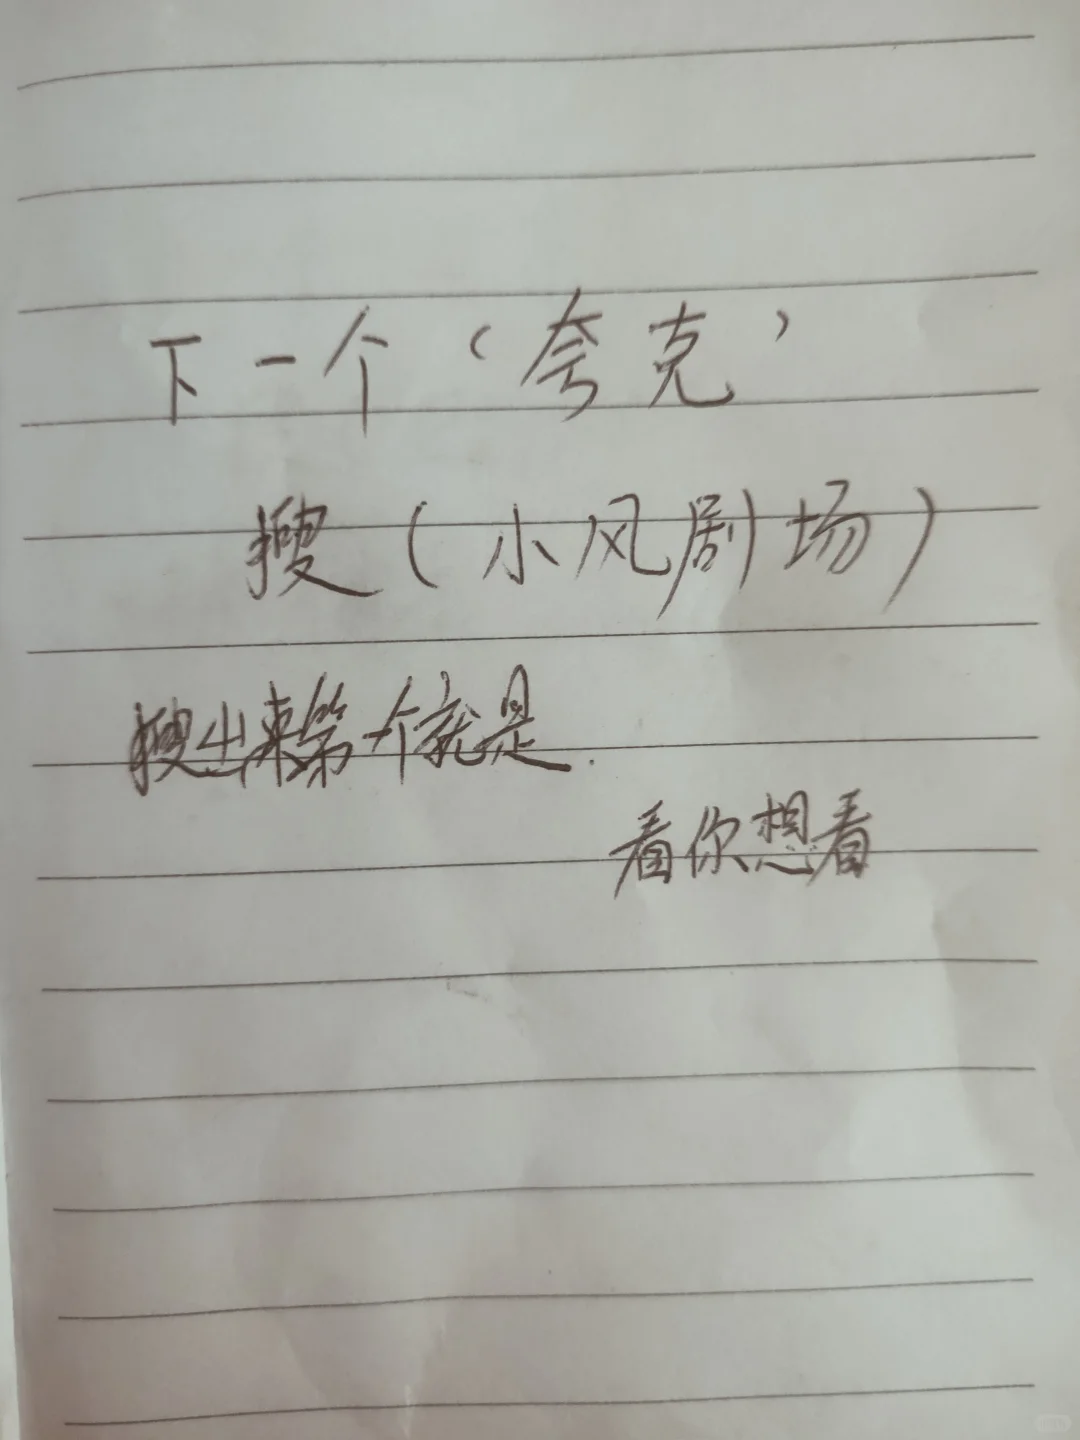 下一个（夸克）
搜（小风剧场）
搜出来第一个就是.
看你想看